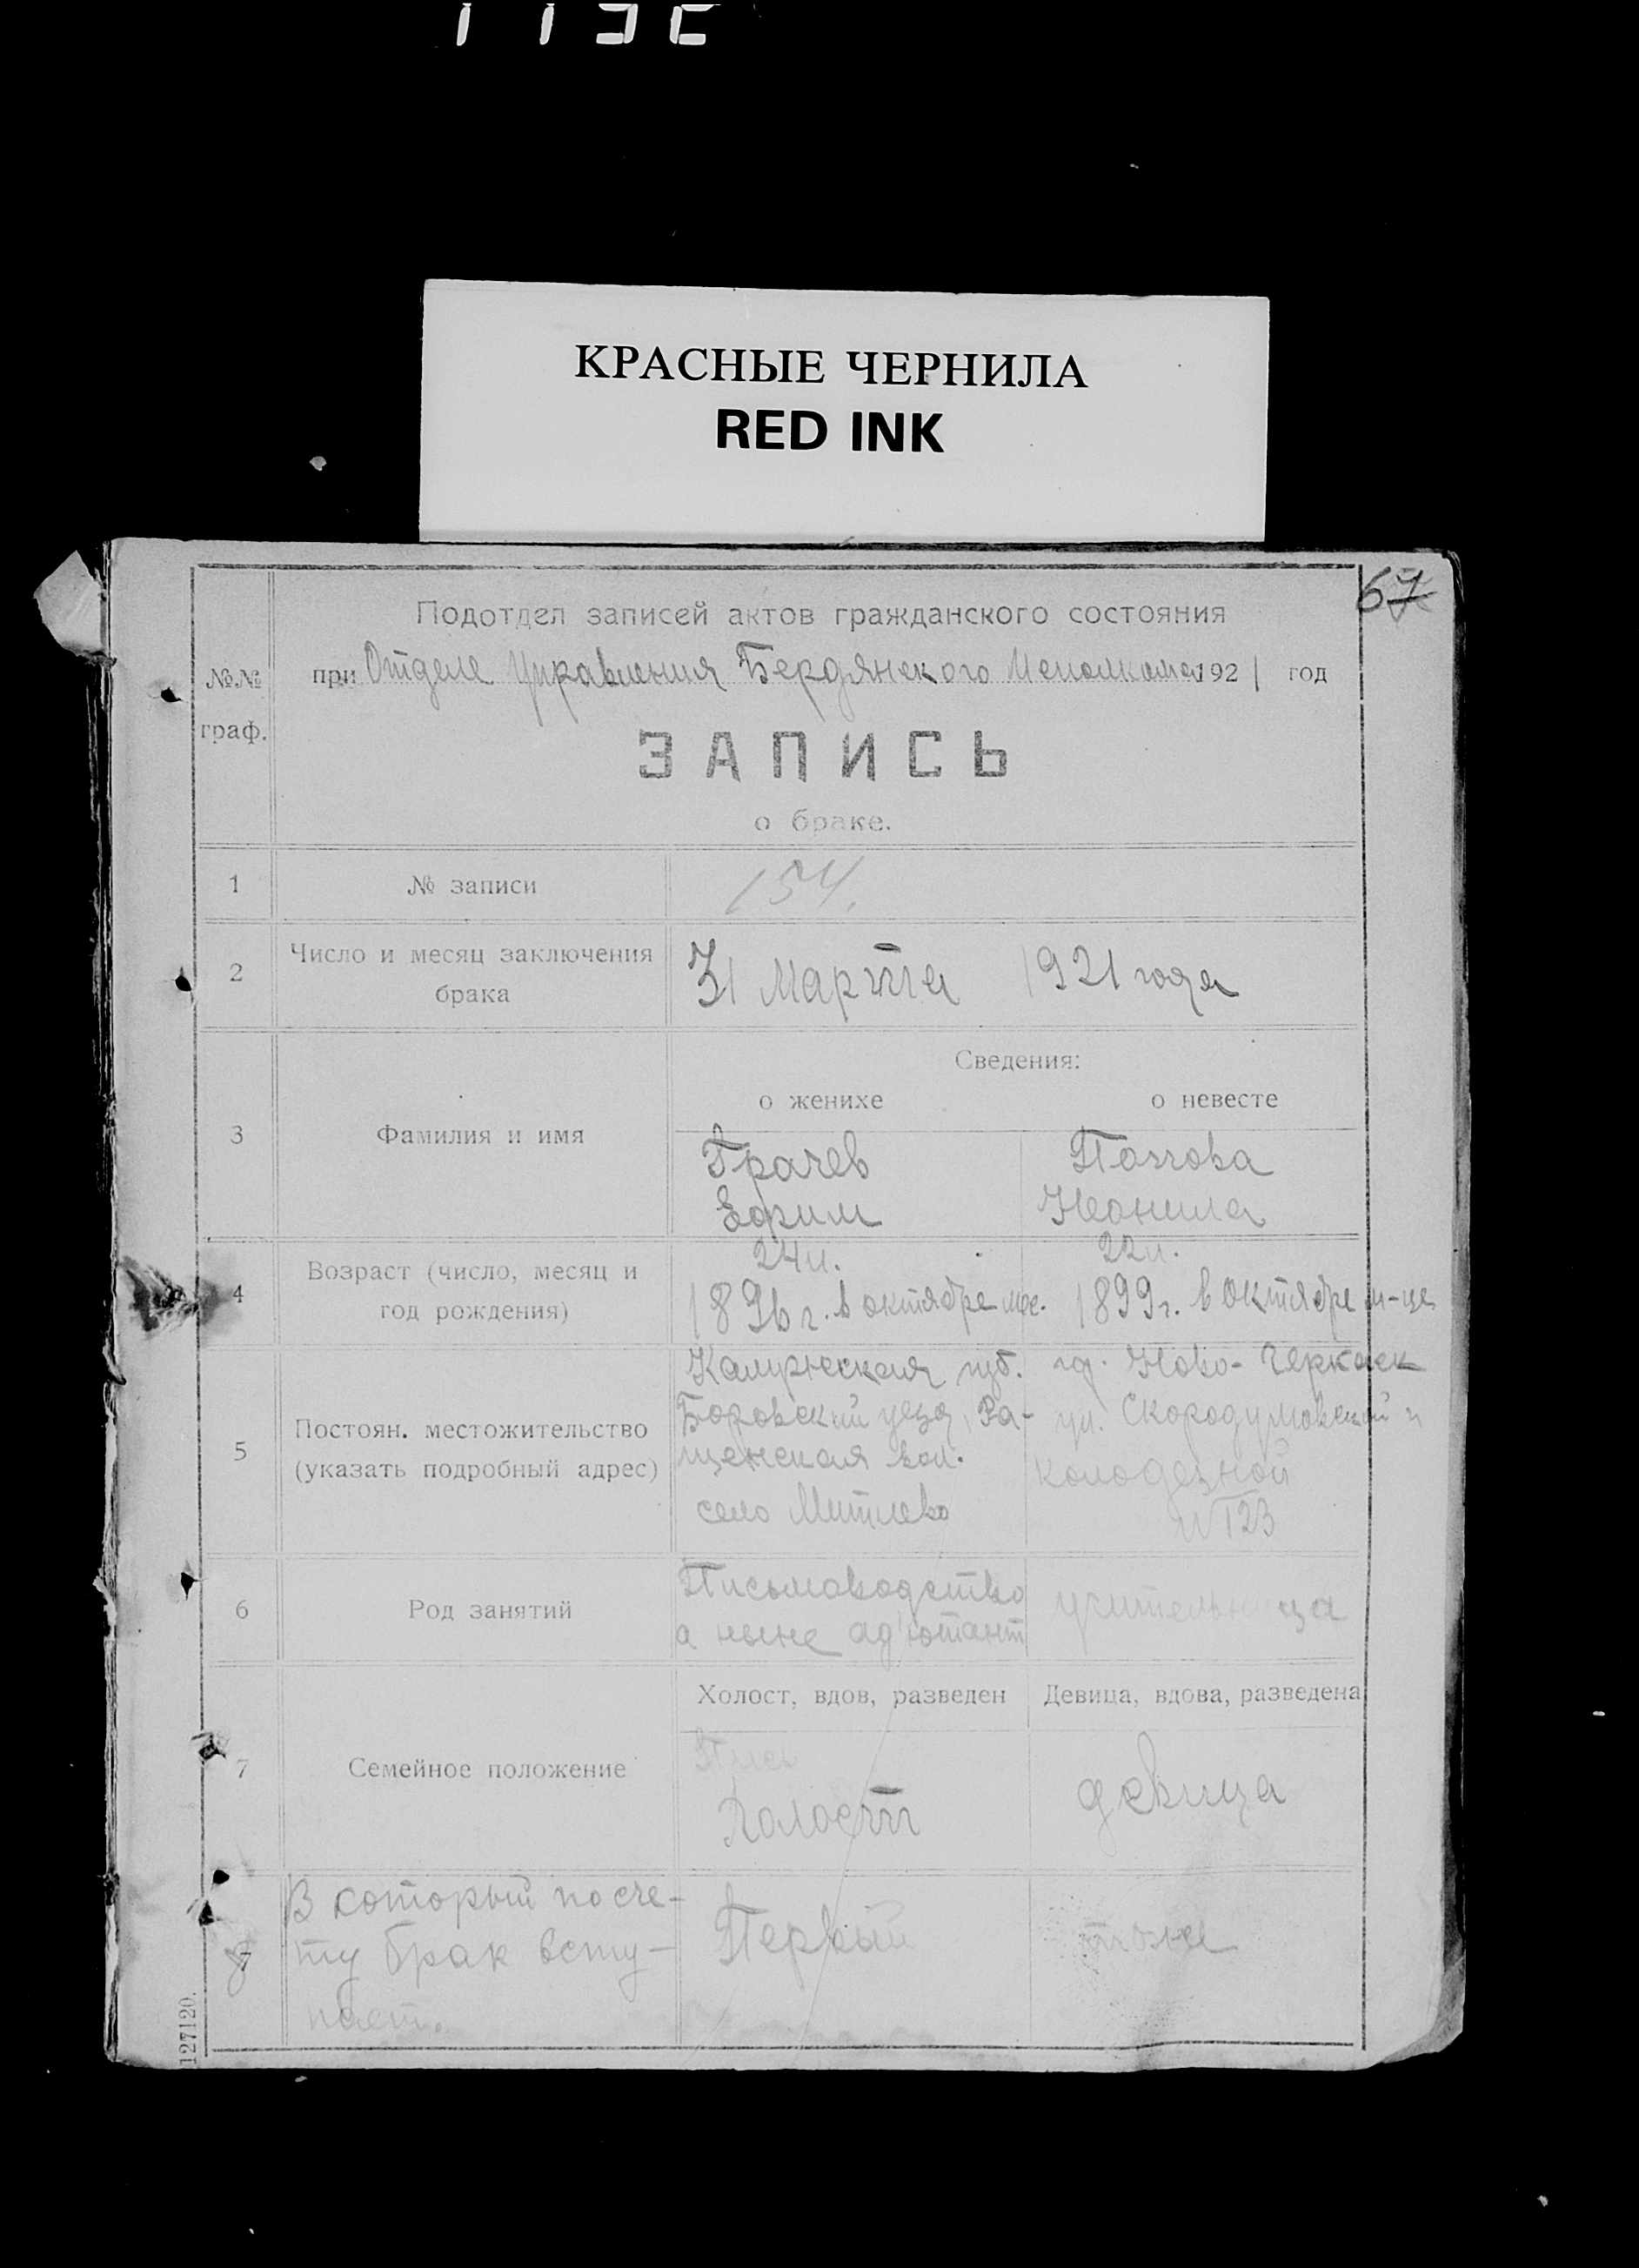 КРАСНЫЕ ЧЕРНИЛА
RED INK
67
Подотдел записей актов гражданского состояния
№№ граф.
при Отделе Управления Бердянского Исполкома 1921 год
ЗАПИСЬ
о браке.
1 № записи 154.
2 Число и месяц заключения брака
31 Марта 1921 года
Сведения:
о женихе о невесте
3 Фамилия и имя
Грачев
Ефрим
Неонила
4 Возраст (число, месяц и год рождения)
24 л. 22 л.
1896 г. в октябре мце. 1899 г. в Октябре м-це
5 Постоян. местожительство (указать подробный адрес)
Калужская губ. гор. Ново-Черкаск
Боровский уезд, Ра- ул. Скородумовской и
щенская вол. колодезной
село Митлево №123
6 Род занятий
Письмоводство учительница
а ныне ад'ютант
Холост, вдов, разведен Девица, вдова, разведена
7 Семейное положение
Пись
Холост девица
8 В который по сче-
ту брак всту-
пает.
Первый тоже
127120.